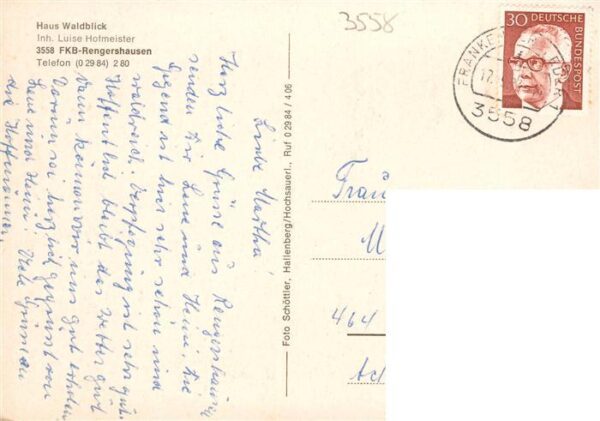 Haus Waldblick
Inh. Luise Hofmeister
3558 FKB-Rengershausen
Telefon (0 29 84) 2 80
3558
30 DEUTSCHE
BUNDESPOST
FRANKEN
3558
Liebe Martha!
Herzliche Grüsse aus Rengershausen
senden Dir Lene und Heini. Die
Gegend ist hier sehr schön und
waldreich. Verpflegung ist sehr gut.
Hoffentlich bleibt das Wetter gut
dann können wir uns gut erholen.
Darum sei herzlich gegrüsst von
Lene und Heini. Viele Grüsse an
die
Foto Schöttler, Hallenberg/Hochsauerl., Ruf 0 29 84 / 4 06
Frau
M
464